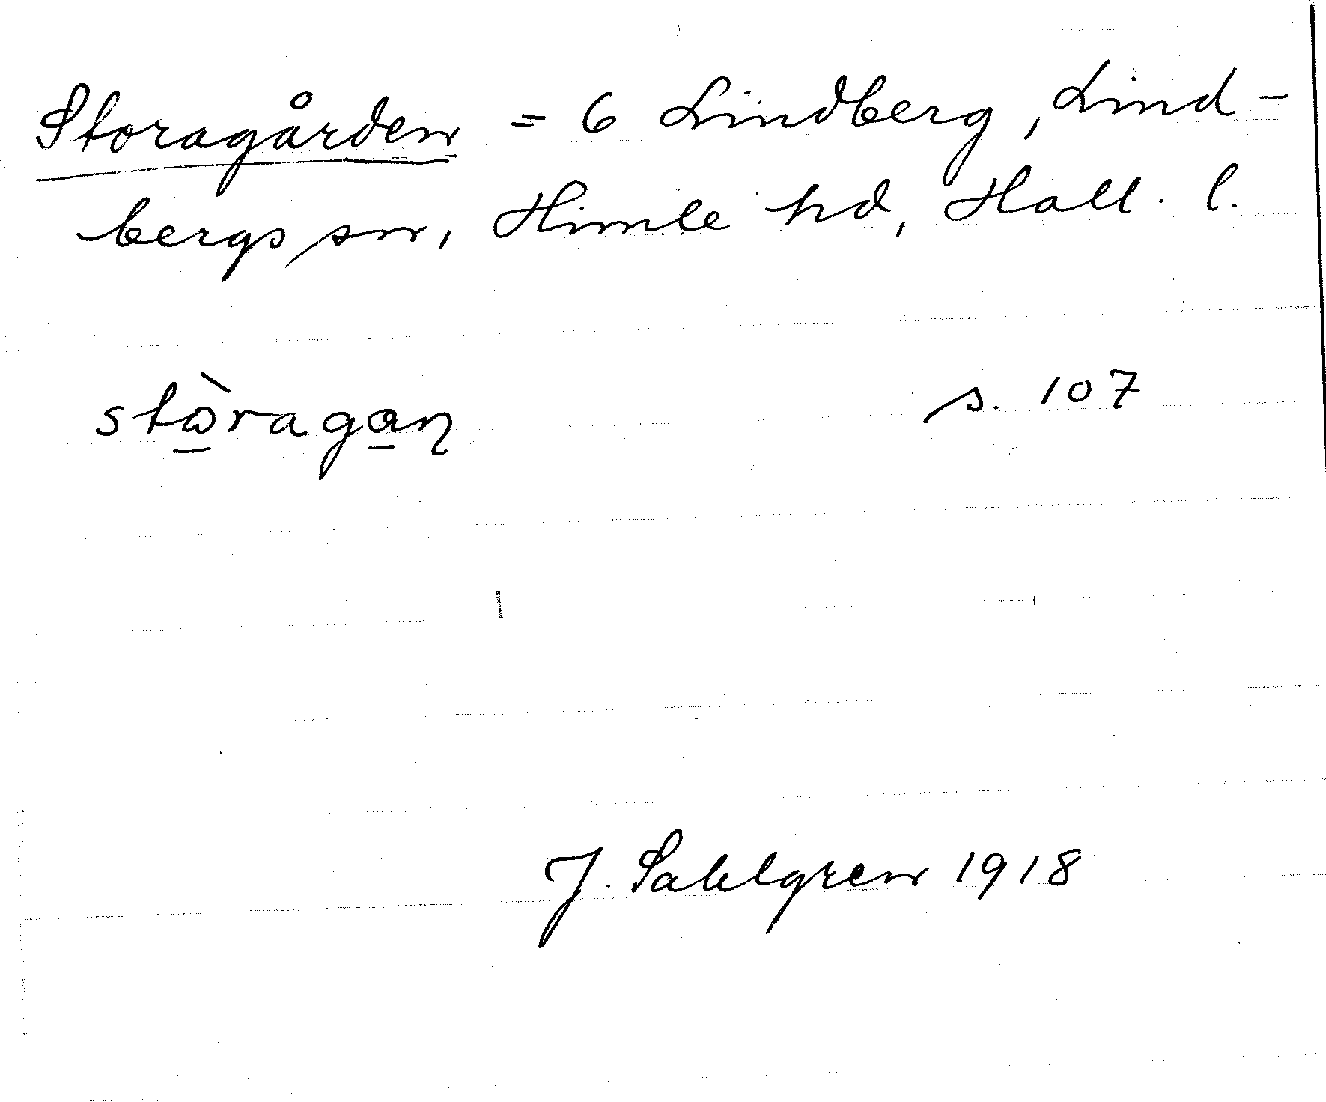 Storagården = 6 Lindberg, Lind-
bergs sn, Himle hd, Hall. l.
stὼ̱raga̱ɳ s. 107
J. Sahlgren 1918